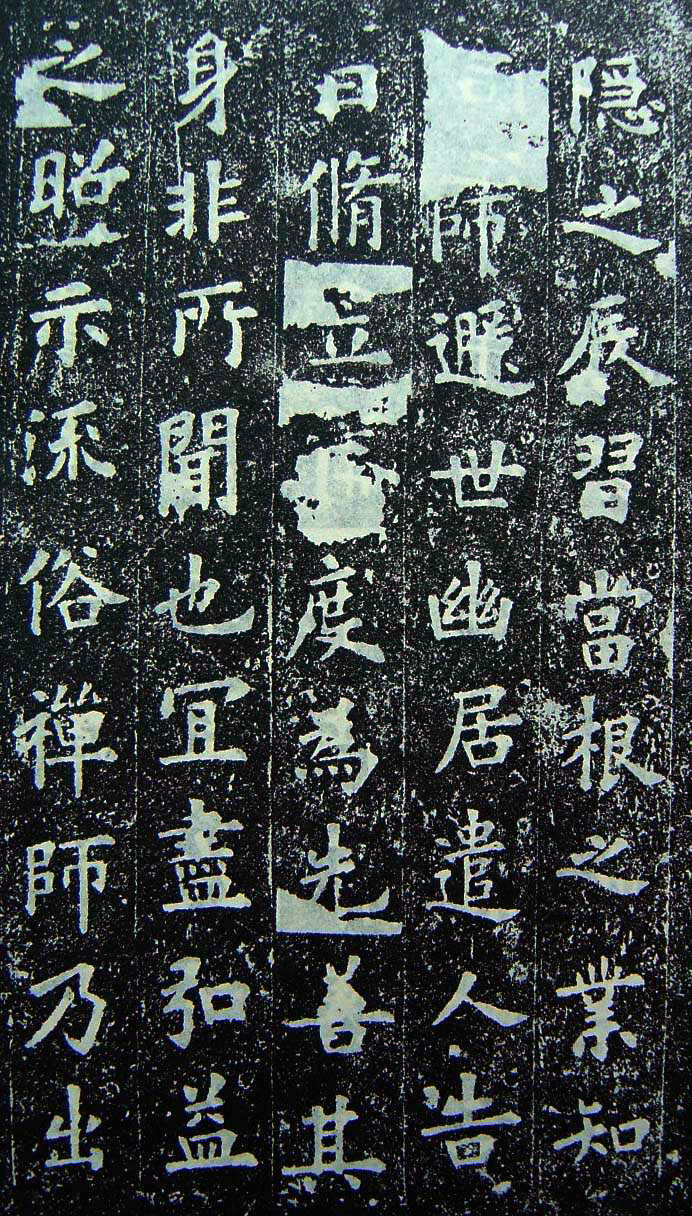 隐之辰習當根之業知
師遁世幽居遣人告
曰脩立僧度為先善其
身非所聞也冝盡弘益
之昭示流俗禪師乃出